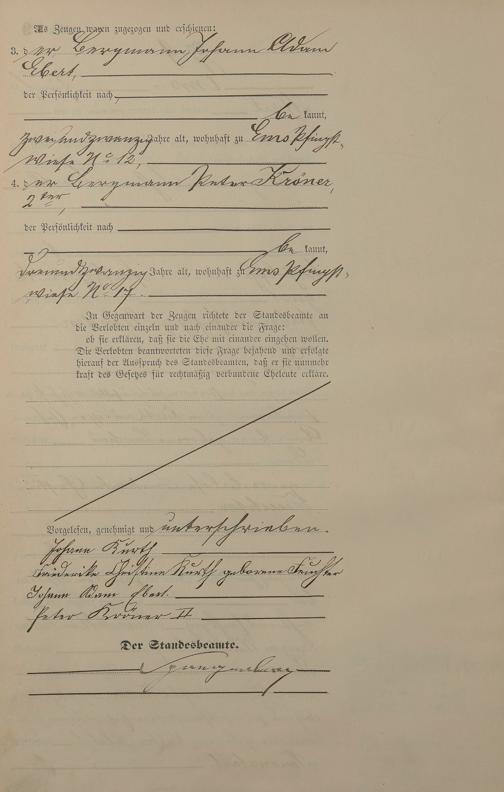 Als Zeugen waren zugezogen und erschienen:
3. der Bergmann Johann Adam
Ebert,
der Persönlichkeit nach
be kannt,
zweiundzwanzig Jahre alt, wohnhaft zu Ems Pfingst-
wiese No 12,
4. der Bergmann Peter Kröner,
2ter,
der Persönlichkeit nach
be kannt,
dreiundzwanzig Jahre alt, wohnhaft zu Ems Pfingst-
wiese No 17.
In Gegenwart der Zeugen richtete der Standesbeamte an
die Verlobten einzeln und nach einander die Frage:
ob sie erklären, daß sie die Ehe mit einander eingehen wollen.
Die Verlobten beantworteten diese Frage bejahend und erfolgte
hierauf der Ausspruch des Standesbeamten, daß er sie nunmehr
kraft des Gesetzes für rechtmäßig verbundene Eheleute erkläre.
Vorgelesen, genehmigt und unterschrieben.
Johann Kurth
Friederike Christine Kurth geborene Feuchter
Johann Adam Ebert.
Peter Kröner II
Der Standesbeamte.